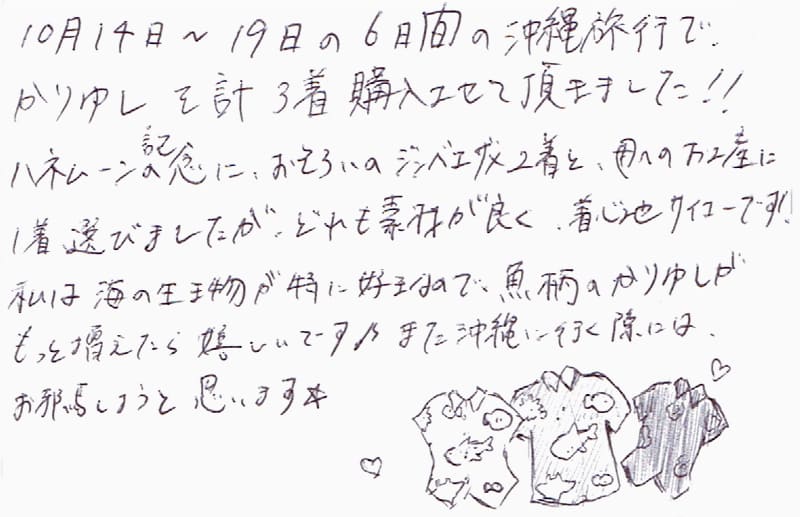 10月14日～19日の6日間の沖縄旅行で、
かりゆしを計3着購入させて頂きました!!
ハネムーンの記念に、おそろいのジンベエザメ2着と、母へのお土産に
1着選びましたが、どれも素材が良く、着心地サイコーです!!
私は海の生き物が特に好きなので、魚柄のかりゆしが
もっと増えたら嬉しいです♪ また沖縄に行く際には、
お邪魔しようと思います☆